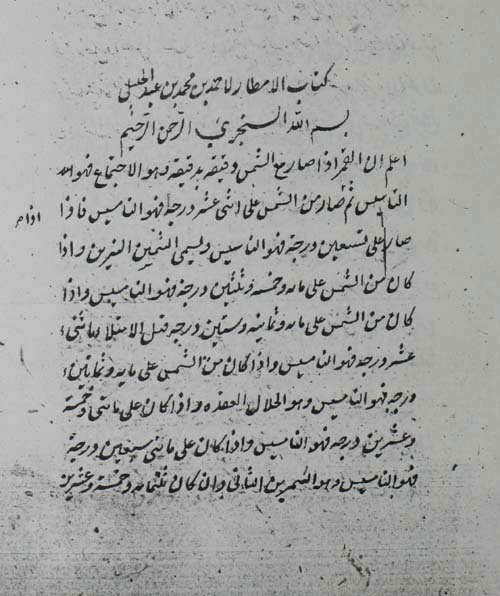 كتاب الامطار لاحمد بن محمد بن عبد الجليل
بسم الله السنجري الرحمن الرحيم
اعلم ان القمر اذا صار مع الشمس دقيقه بدقيقه وهو الاجتماع فهو
التاسيس ثم صار من الشمس على اثنى عشر درجة فهو التاسيس فاذا
اذا
صار على تسعين درجة فهو التاسيس ويسمى النيرين واذا
كان من الشمس على مايه وخمسه وثلثين درجة فهو التاسيس واذا
كان من الشمس على مايه وثمانيه وستين درجه قبل الامتلا باثنى
عشر درجه فهو التاسيس واذا كان من الشمس على مايه وثمانين
درجه فهو التاسيس وهو العقده واذا كان على مايتى وخمسة
وعشرين درجه فهو التاسيس واذا كان على مايتى سبعين درجة
فهو التاسيس وهو الثانى وان كان ثلثمايه وخمسة وعشرين